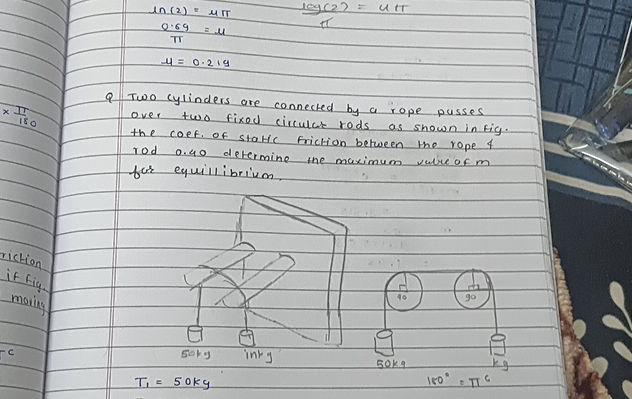 ln(2) = μπ
log(2) = μπ
π
0.69 = μ
π
μ = 0.219
Q Two cylinders are connected by a rope passes
over two fixed circular rods as shown in Fig.
the coef. of static friction between the rope &
rod 0.40 determine the maximum value of m
for equillibrium.
× π
180
riction
if Fig.
moving
c
90
90
50kg
in kg
50kg
kg
T₁ = 50kg
180° = π ᶜ